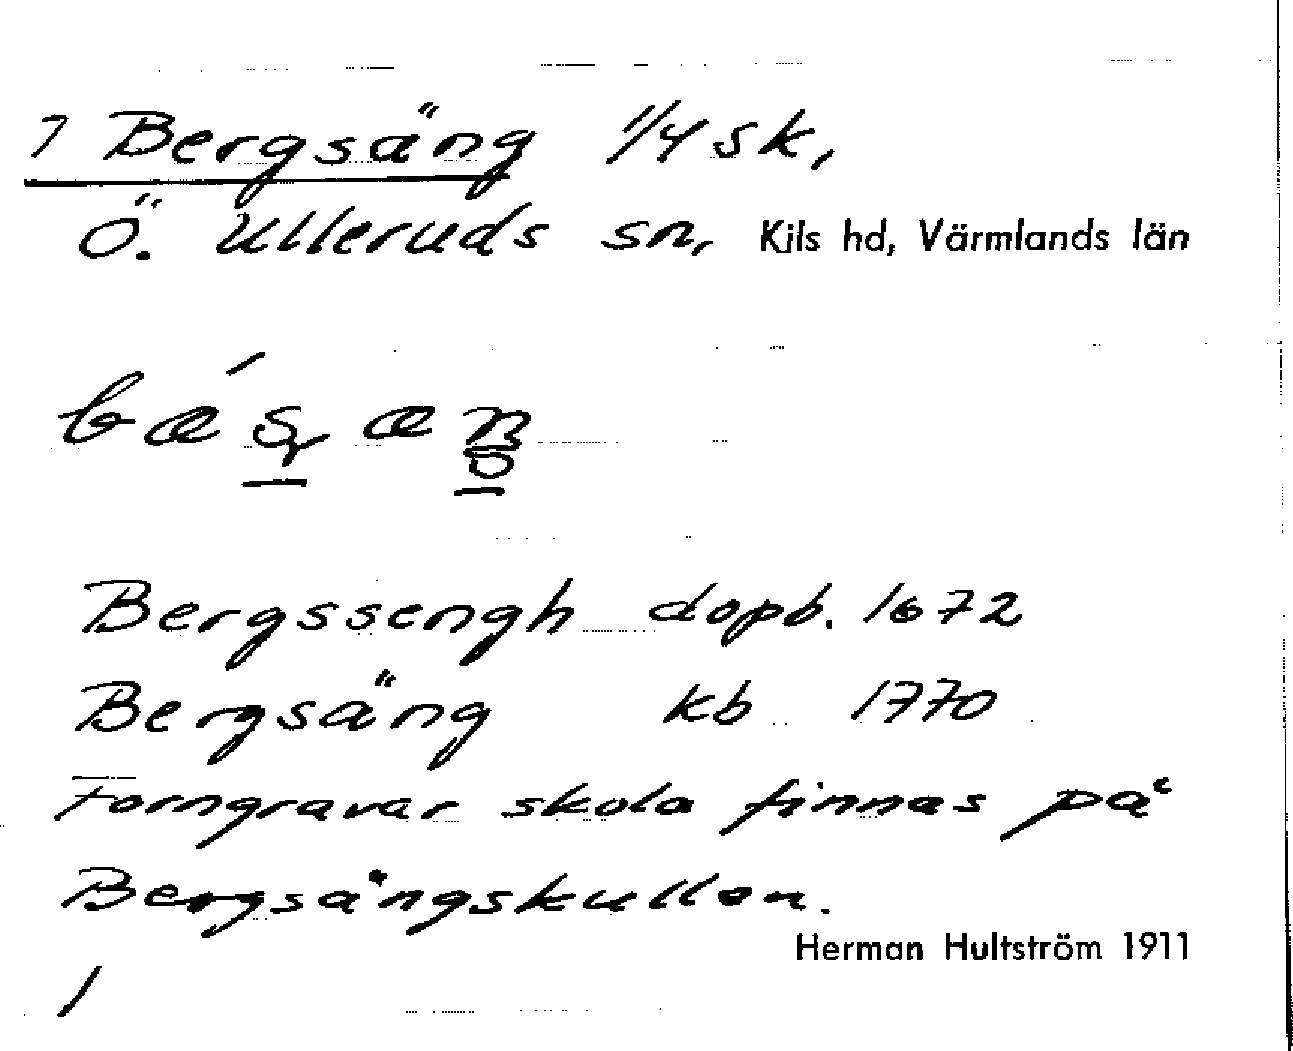 7 Bergsäng 1/4 sk,
Ö. Ulleruds sn, Kils hd, Värmlands län
Bergssengh dopb. 1672
Bergsäng kb 1770
Forngravar skola finnas på
Bergsängskullen.
Herman Hultström 1911
/